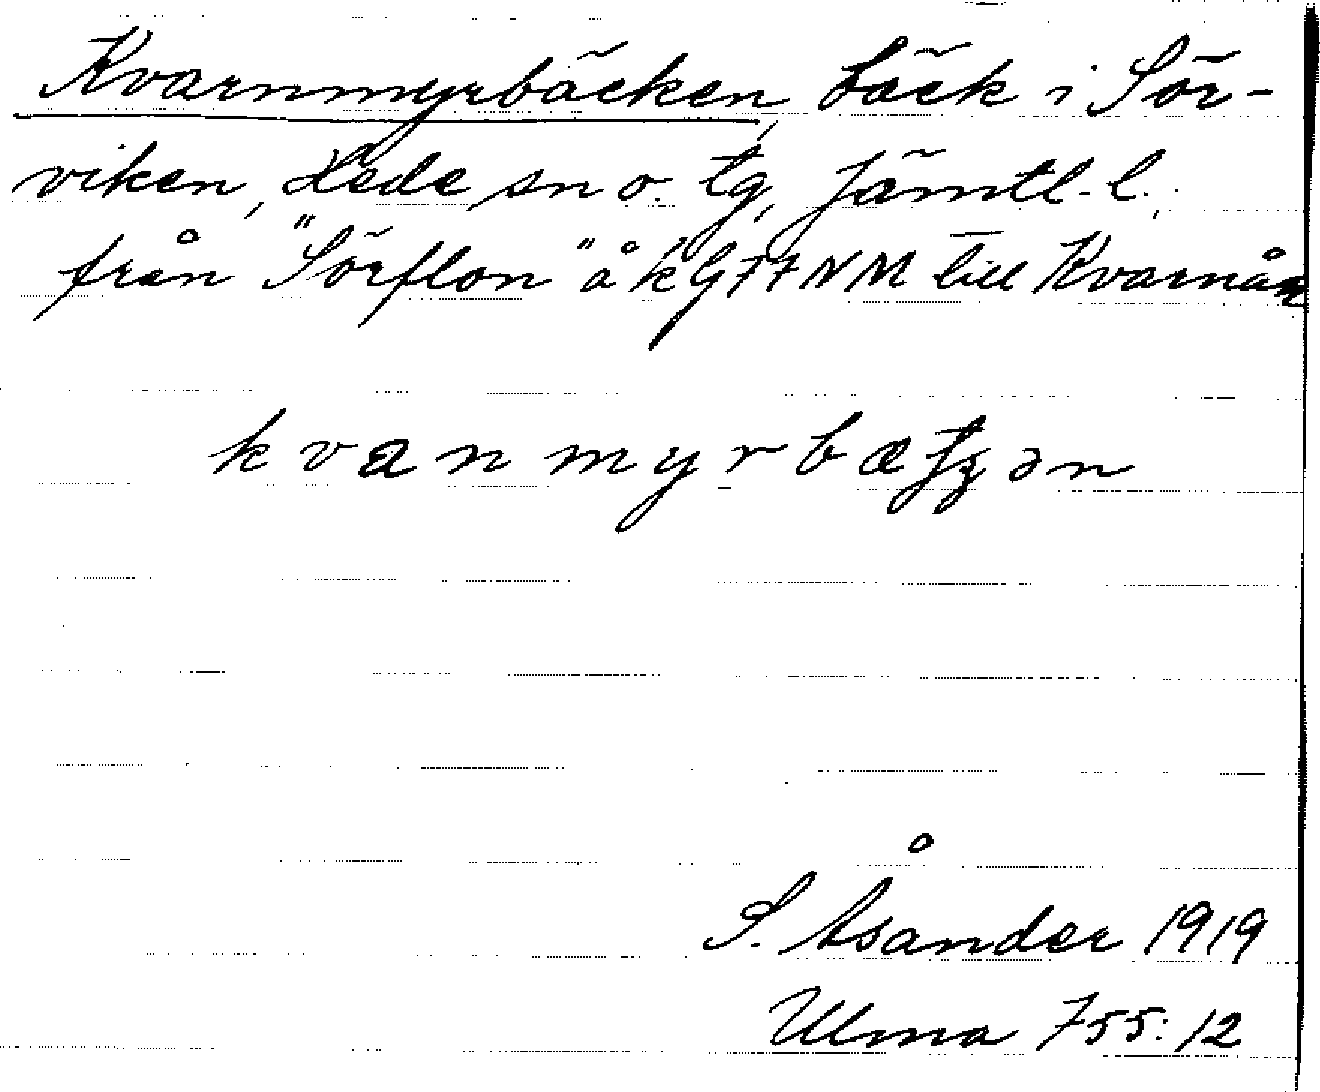 Kvarnmyrbäcken, bäck i Sör-
viken, Hede sn o. tg, Jämtl. l.,
från "Sörflon" å k G77NM till Kvarnån
kvanmyrbæʈʂən
S. Åsander 1919
Ulma 755:12